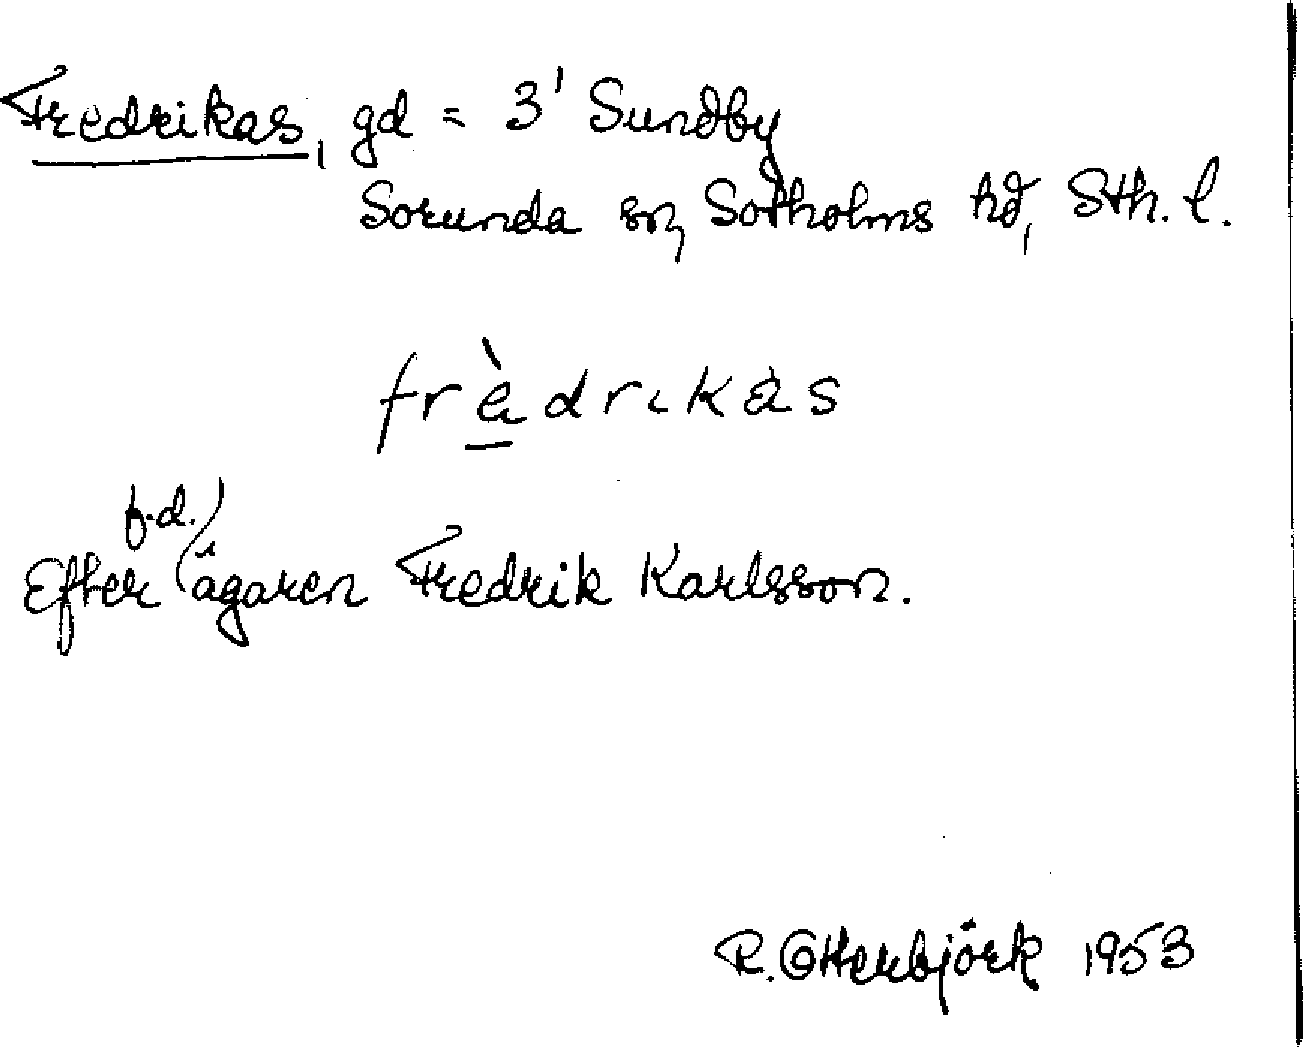 Fredrikas, gd = 3¹ Sundby
Sorunda sn, Sotholms hd, Sth. l.
frèdrıkàs
f.d.
Efter ägaren Fredrik Karlsson.
R. Otterbjörk 1953